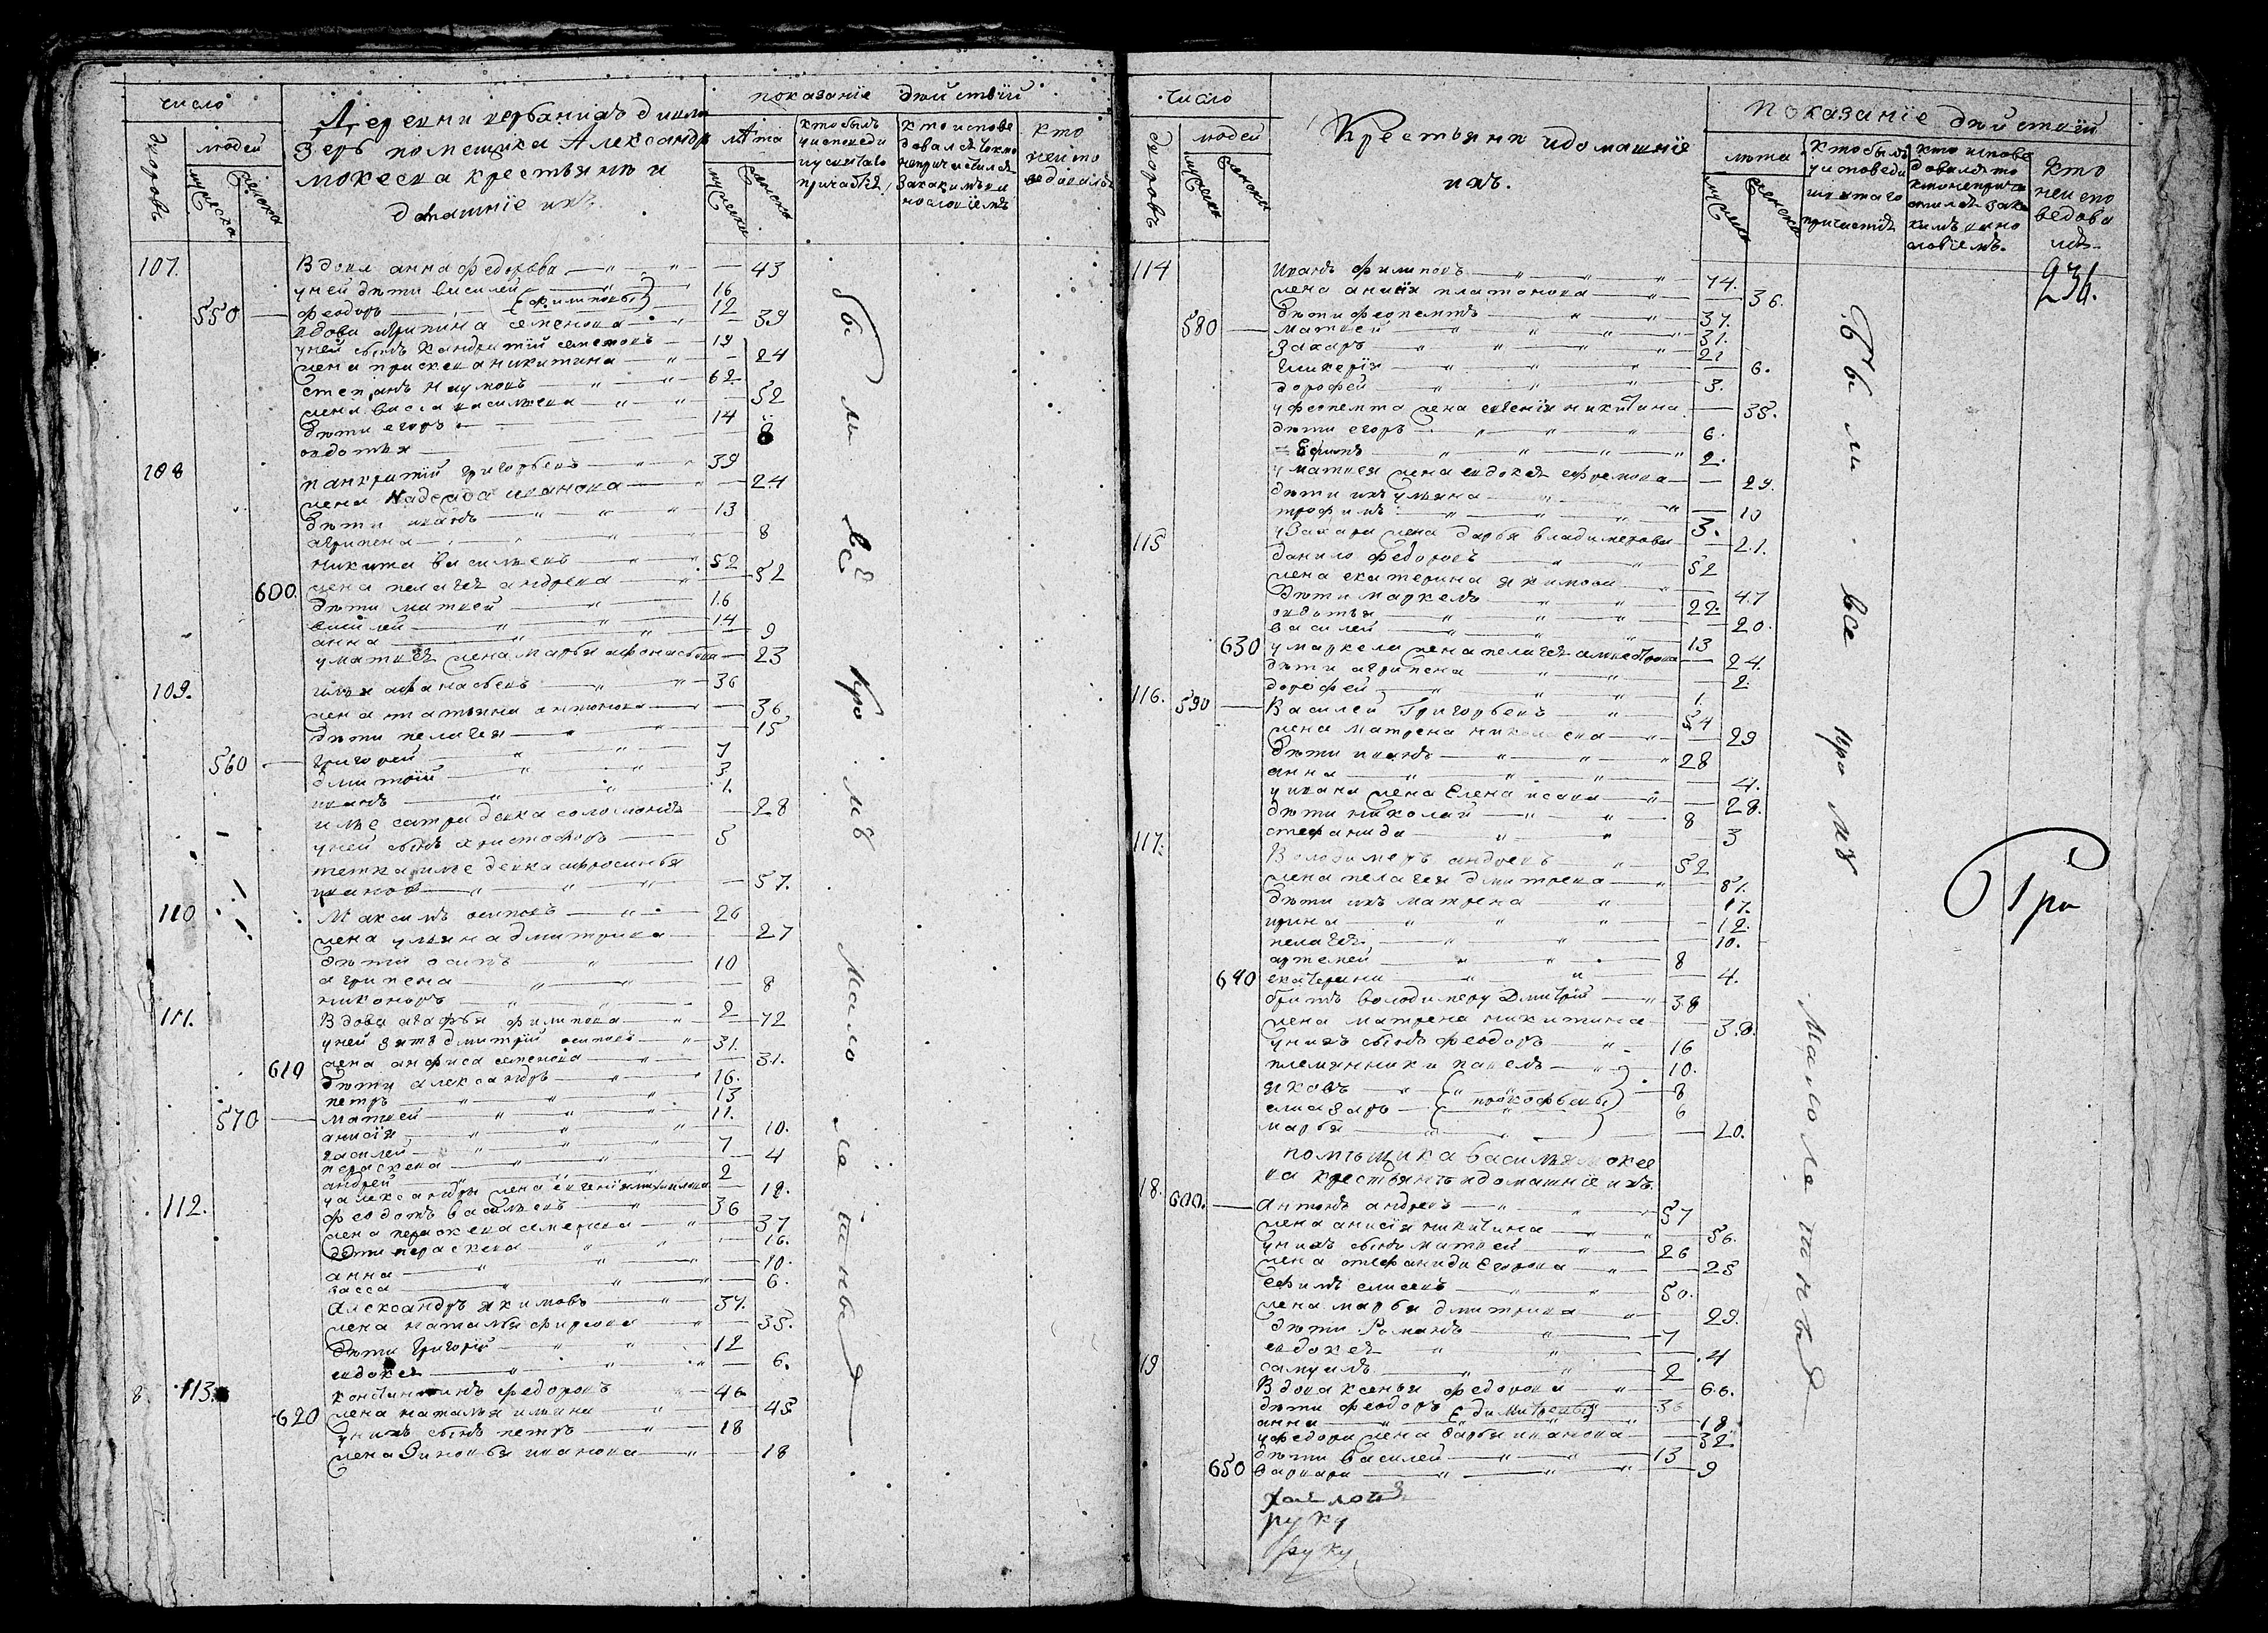 число
показанїе дѣйствїй
дворовъ
людей
мужеска
женска
помещика Александра
мокеева крестьяни и
домашнїе ихъ.
лѣта
мужеска
женска
кто былъ
у исповеди
и у святаго
причастїя
кто испове
довался токмо
не причастился
за какимъ ви
нословїемъ
кто
не испо
ведовался
107. Вдова анна федорова — 43
у ней дѣти василей 16
550 феодоръ (филиповы) 12
вдова агрипина семенова 39
у ней сынъ кандратїй семеновъ 19
жена прасковя никитина 24
степанъ наумовъ 62
жена васса васильева 52
дѣти егоръ 14
овдотья 8
108 панкратїй григорьевъ 39
жена Надежда иванова 24
дѣти иванъ 13
агрипена 8
никита васильевъ 52
600. жена пелагея андреева 52
дѣти матвей 16
василей 14
анна 9
у матвея жена марья афонасьева 23
109. илья афанасьевъ 36
жена татьяна антонова 36
дѣти пелагея 15
560 григорей 7
дмитрїй 3
иванъ 1.
илье сестра девка соломонида 28
у ней сынъ христофоръ 5
тетка илье девка афросинья
иванова 57.
110 Максимъ осиповъ 26
жена ульяна дмитрева 27
дѣти осипъ 10
агрипена 8
никоноръ 2
111. Вдова агафья филипова 72
у ней зять дмитрїй осиповъ 31.
610 жена анфиса семенова 31.
дѣти александръ 16.
петръ 13
570 матвей 11.
анисїя 10.
василей 7
параскева 4
андрей 2
у александры жена евгенїя 18.
112. федотъ васильевъ 36
жена параскева семенова 37
дѣти параскева 16.
анна 10.
васса 6.
Александръ якимовъ 37.
жена наталья фирсова 35.
дѣти григорїй 12
евдокея 6.
113. константинъ федоровъ 46
620 жена наталья ильина 45
у нихъ сынъ петръ 18
жена Зиновья иванова 18
были всѣ кромѣ малолѣтныхъ
число
дворовъ
людей
мужеска
женска
Крестьяни и домашнїе
ихъ.
показанїе дѣйствїй
лѣта
мужеска
женска
кто былъ
у исповеди
и у святаго
причастїя
кто испове
довался то
кмо не прича
стился за ка
кимъ вино
словїемъ.
кто
не испо
ведова
лся
236.
114 Иванъ филиповъ 74.
жена анисїя платонова 36.
дѣти феопемптъ 37.
580 матвей 31.
захаръ 21
гликерїя 6.
дорофей 3.
у феопемта жена евгенїя никитина 35.
дѣти егоръ 6.
Ефимъ 2.
у матвея жена евдокея ефремова 29.
дѣти ихъ ульяна 10
трофимъ 3.
115 у Захара жена дарья владимерова 21.
данило федоровъ 52
жена екатерина якимова 47
дѣти маркелъ 22.
овдотья 20.
василей 13
630 у маркела жена пелагея 24.
дѣти агрипена 2.
дорофей 1.
116. 590 Василей Григорьевъ 54
жена матрена 29
дѣти иванъ 28
анна 4.
у ивана жена Елена исаева 28.
дѣти николай 8
стефанида 3
117. Володимеръ андреевъ 52
жена пелагея дмитрева 51.
дѣти ихъ матрена 17.
ирина 12.
пелагея 10.
артемей 8
640 екатерина 4.
братъ володимеру Дмитрїй 38
жена матрена никитина 38.
у нихъ сынъ феодоръ 16
племянники павелъ 10.
яковъ (прокофьевы) 8
елиазаръ 6
марья 20.
помѣщика василья мокее
ва крестьянъ и домашнїе ихъ.
18. 600. Антонъ андреевъ 57
жена анисїя никитина 56.
у нихъ сынъ матвей 26
жена стефанида Егорова 25
ефимъ елисеевъ 50.
жена марья дмитрева 29.
дѣти Романъ 7
евдокея 4
самуилъ 2
19 Вдова ксенья федорова 66.
дѣти феодоръ 36
анна 18
у федора жена дарья иванова 32
дѣти василей 13
650 варвара 9
руку
руку
Были все кромѣ малолетныхъ